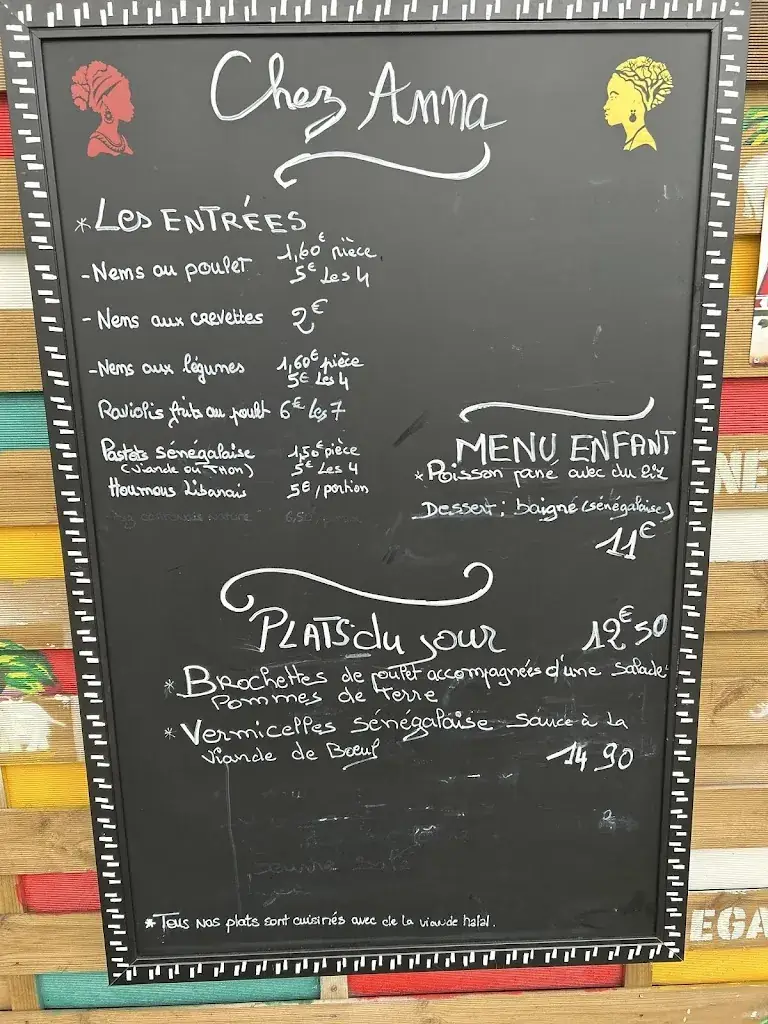 Chez Anna
*Les ENTRÉES
-Nems au poulet 1,60€ pièce
5€ Les 4
-Nems aux crevettes 2€
-Nems aux légumes 1,60€ pièce
5€ Les 4
Raviolis frits au poulet 6€ les 7
Pastels sénégalaise 1,50€ pièce
(viande ou THON) 5€ Les 4
Houmous Libanais 5€/portion
MENU ENFANT
*Poisson pané avec du riz
Dessert: baigné (sénégalaise)
11€
PLATS du jour 12€50
*Brochettes de poulet accompagnées d'une salade
Pommes de terre
*Vermicelles sénégalaise sauce à la
viande de Bœuf 14 90
*Tous nos plats sont cuisinés avec de la viande halal.
NE
EGA